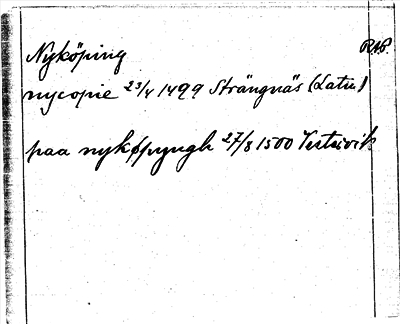 Nyköping RAP.
nycopie 23/4 1499 Strängnäs (Latin)
paa nykøpyngh 27/8 1500 Vestervik